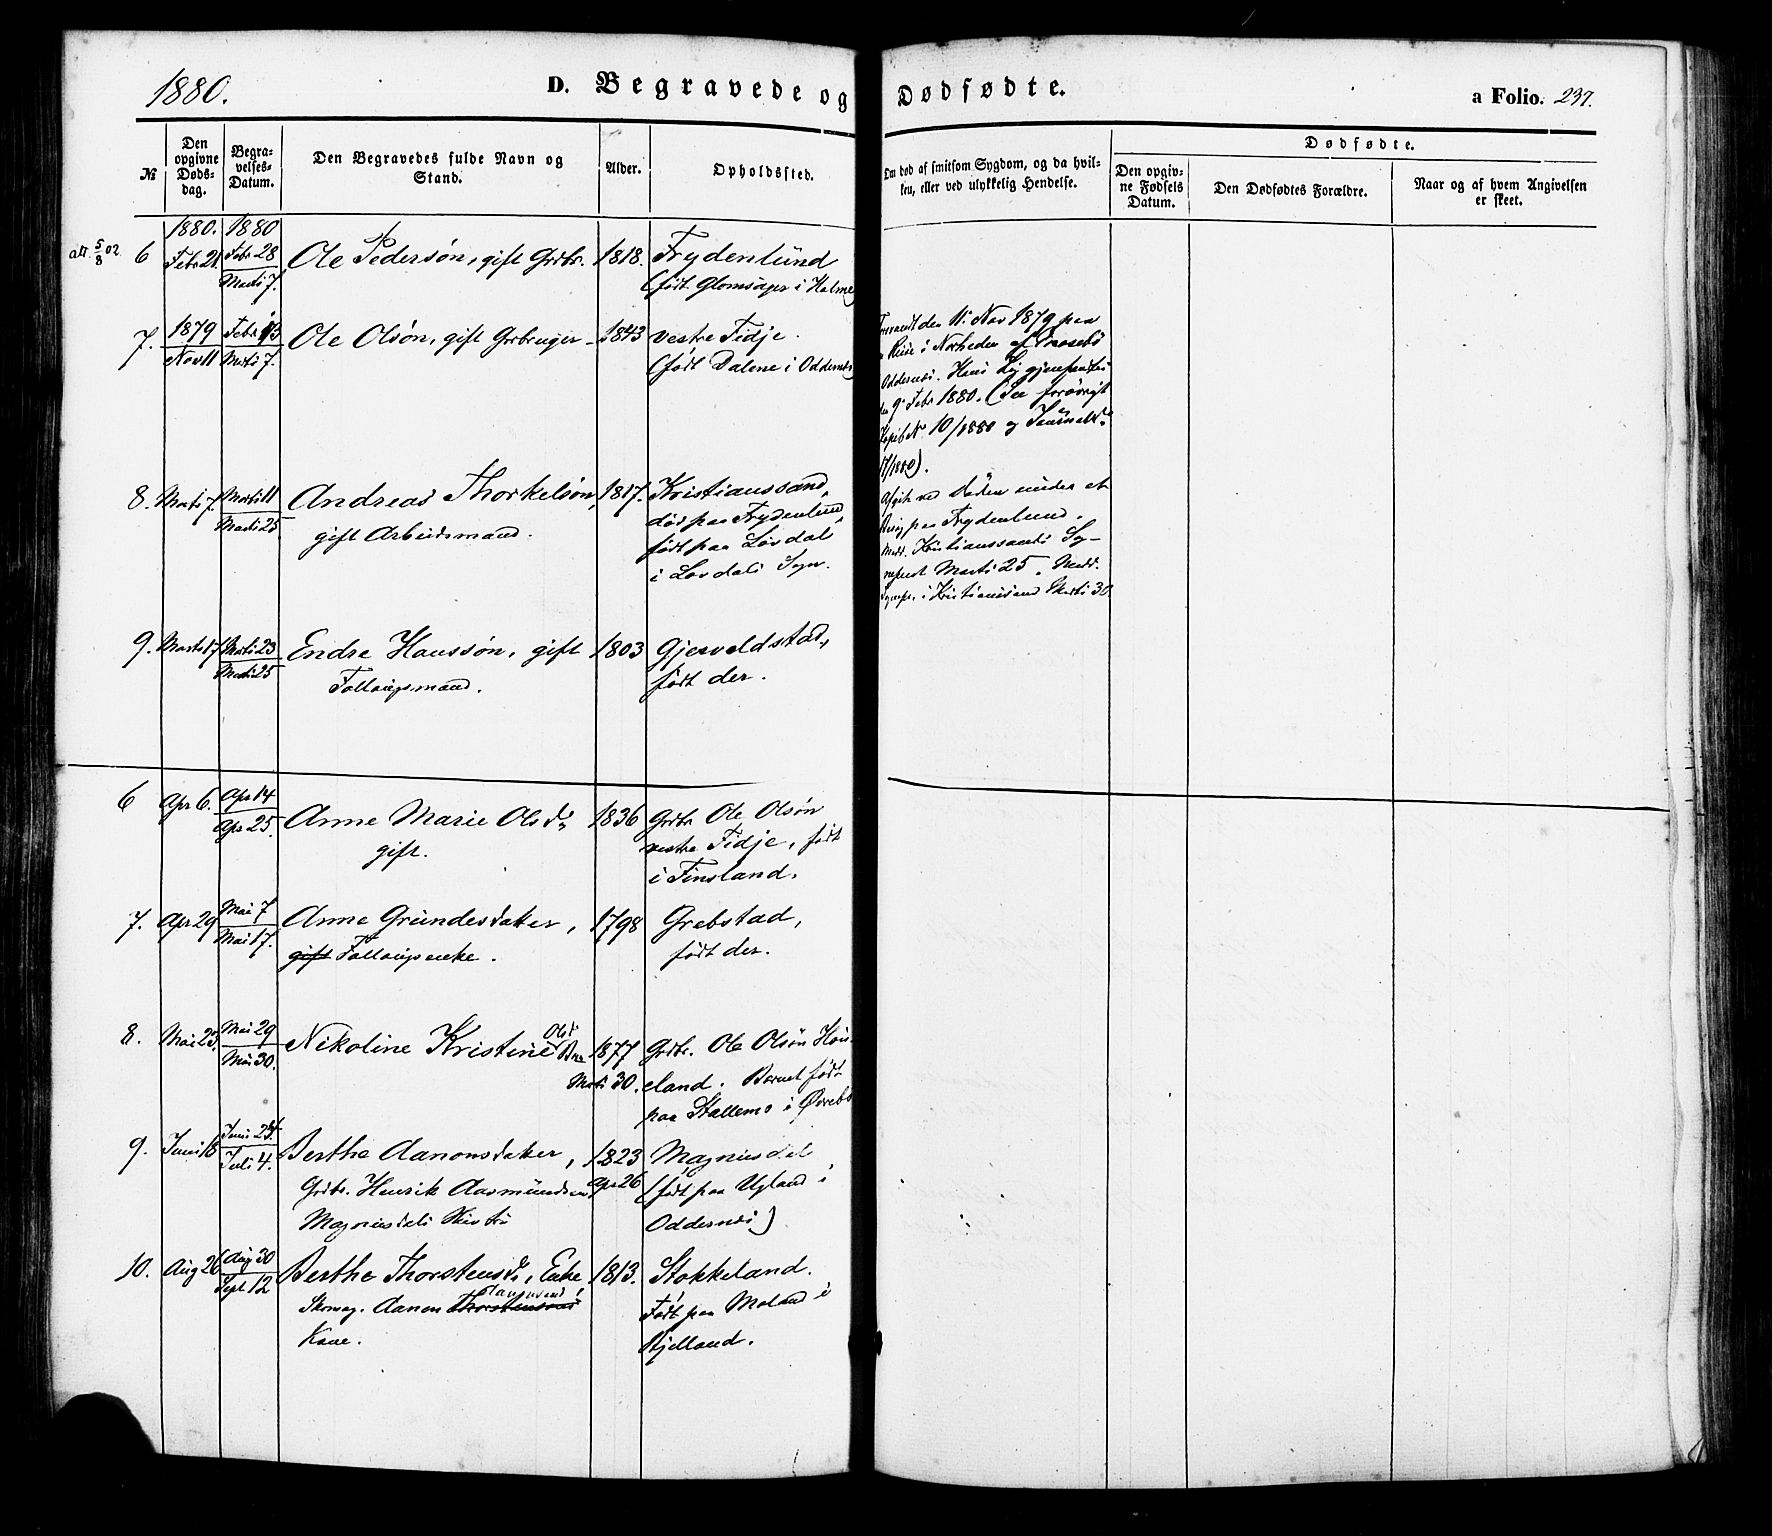 1880.
D. Begravede og Dødfødte.
a Folio. 237.
№
Den opgivne Dødsdag.
Begravelses-Datum.
Den Begravedes fulde Navn og Stand.
Alder.
Opholdssted.
Om død af smitsom Sygdom, og da hvilken, eller ved ulykkelig Hendelse.
Dødfødte.
Den opgivne Fødsels Datum.
Den Dødfødtes Forældre.
Naar og af hvem Angivelsen er skeet.
1880. 1880
6 Febr 21. Febr 28 Ole Pedersøn, gift Grdbr. 1818. Frydenlund
Marts 7. (født Glomsager i Halme
7. 1879 Febr 13 Ole Olsøn, gift Grbruger 1843 vestre Fidje.
Nov 11 Marts 7. (født Dalene i Oddernes)
den 11. Nov 1879 paa
Reise i Nærheden af Mosebø
Oddernes. Hans Lig gjenfandtes
den 9. Febr 1880. (See forøvrigt
Kopib. N. 10/1880 og Journal N.
17/1880).
8. Marts 7. Marts 11 Andreas Thorkelsøn, 1817. Kristianssand,
Marts 25 gift Arbeidsmand. død paa Frydenlund,
født paa Løvdal
i Løvdals Sogn.
Afgik ved Døden under et
Besøg paa Frydenlund.
Medd. Kristianssands Sog-
nepræst Marts 25. Medd.
i Kristianssand Marts 30
9. Marts 17 Marts 23 Endre Hanssøn, gift 1803 Gjervoldstad,
Marts 25 Føllougsmand. født der.
6 Apr 6. Apr 14
Apr 25. Anne Marie Olsd. 1836 Grdbr Ole Olsøn
gift. vestre Fidje, født
i Finsland.
7. Apr 29 Mai 7 Anne Gundesdatter, 1798 Grebstad,
Mai 17. gift Føllougsenke. født der.
8. Mai 23. Mai 29 Nikoline Kristine Olsd. 1877 Grdbr. Ole Olsøn Hou-
Mai 30. Marts 30. eland. Barnet født
paa Stallemo i Øvrebø
9. Juni 18 Juni 23. Berthe Aanonsdatter, 1823 Magnusdal
Juli 4. Grdbr. Henrik Aasmundsen Apr 26 (født paa Ugland i
Magnusdals Hustru Oddernes)
10. Aug 26 Aug 30 Berthe Thorstensd., Enke 1813. Stokkeland.
Sept 12 Skomag. Aanen Thorstensøns Født paa Moland i
Kone. Hjelland.